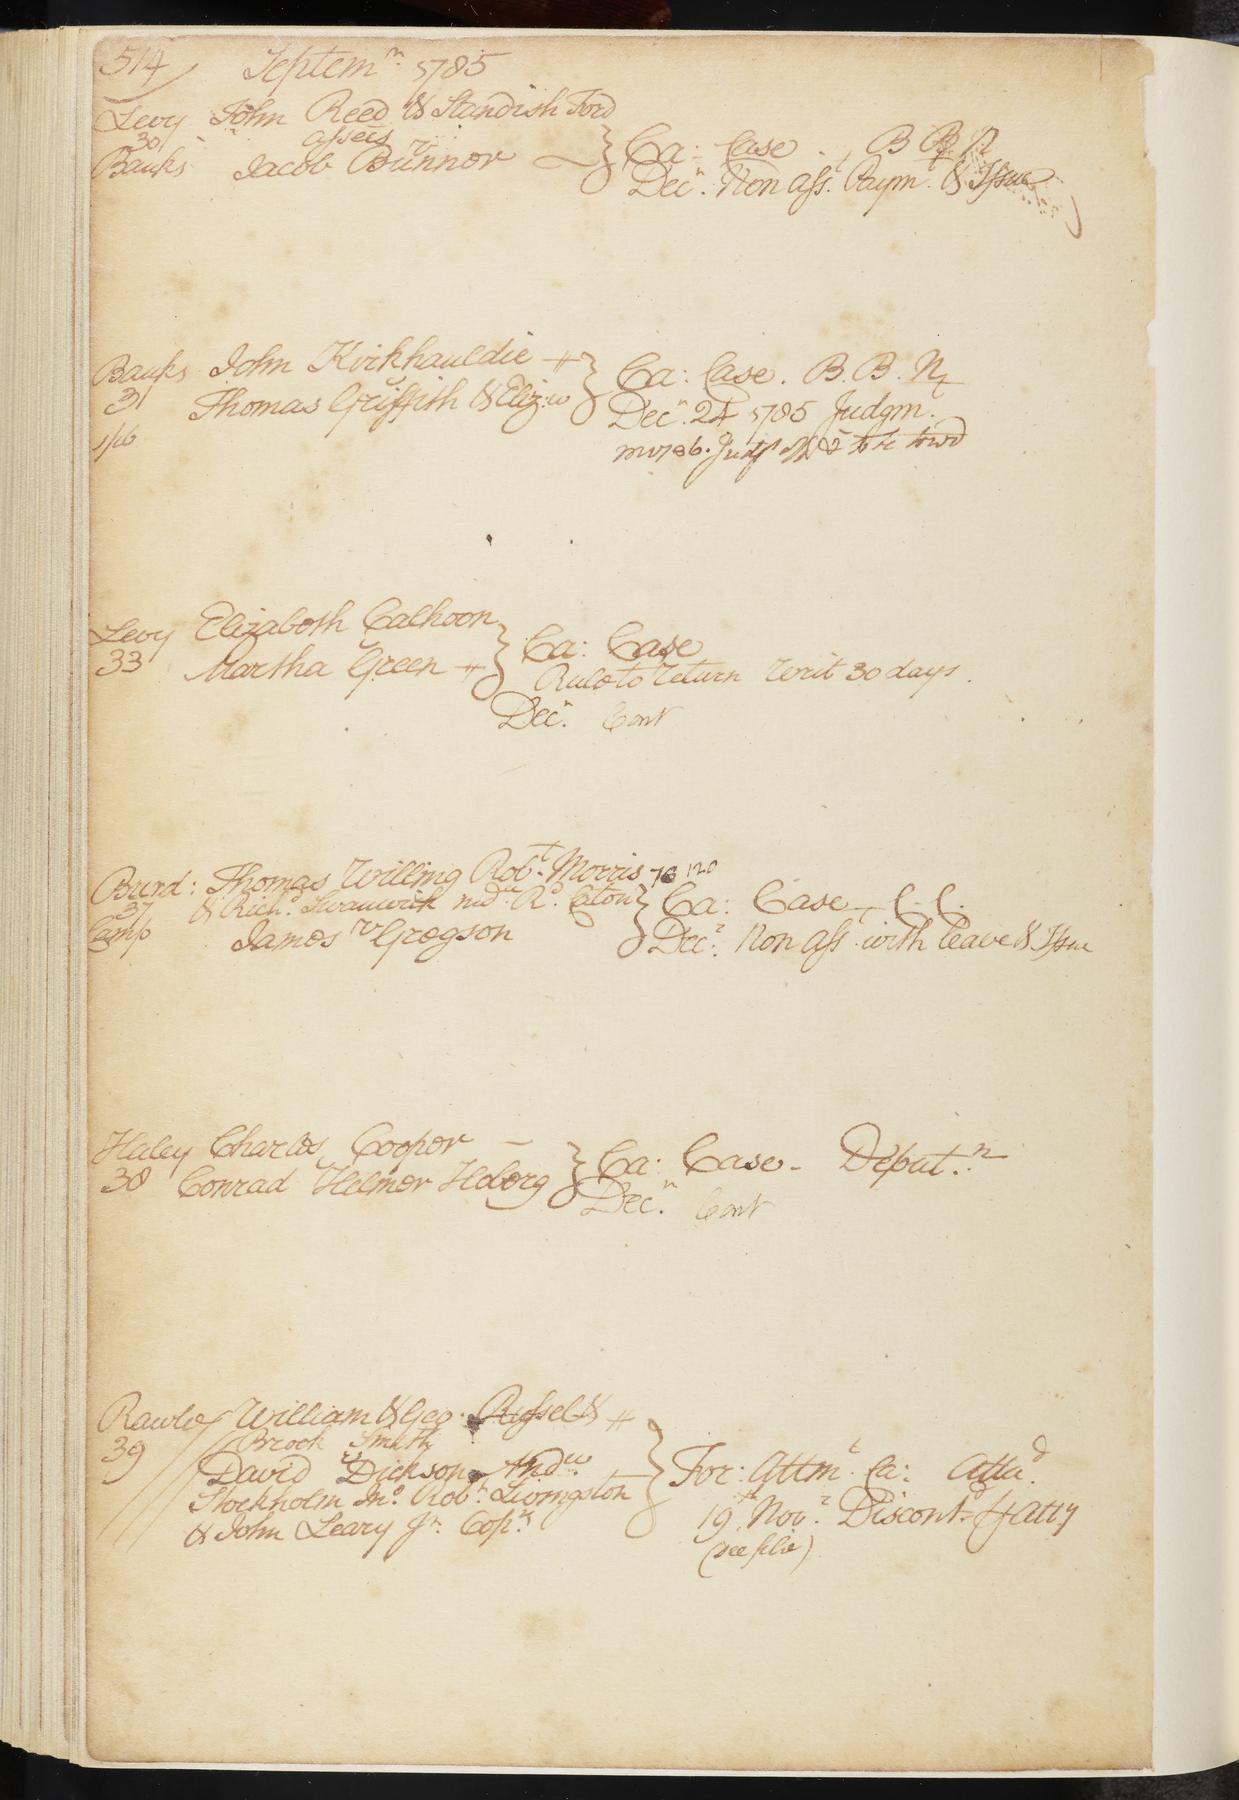 514 Septem.r 1785
Levy John Reed & Standish Ford
30 assees
Banks Jacob Bunnor
Ca: Case . B B N
Dec.r Non ass.t Paym.t & Issue
Banks John Kirkhauldie
31 Thomas Griffith & Eliz: w
Ca: Case. B. B. N
Dec.r 24 1785 Judgm.t
Levy Elizabeth Calhoon
33 Martha Green
Ca: Case
Rule to return Writ 30 days.
Dec.r Cont
Burd: Thomas Willing Rob.t Morris 76 120
37 & Rich.d Swanwick
Camp James Gregson
Ca: Case C. C.
Dec.r Non ass. with leave & Issue
Haley Charles Cooper
38 Conrad Helmer Heberg
Ca: Case - Deput.n
Dec.r Cont
Rawle William & Geo. Russel &
39 Brook Smith
David Dickson And.w
Stockholm Jn.o Rob.t Livingston
& John Leary Jr. Cop.rs
For: Attm.t Ca: Atta.d
19.th Nov.r Discont.d Atty
(see file)